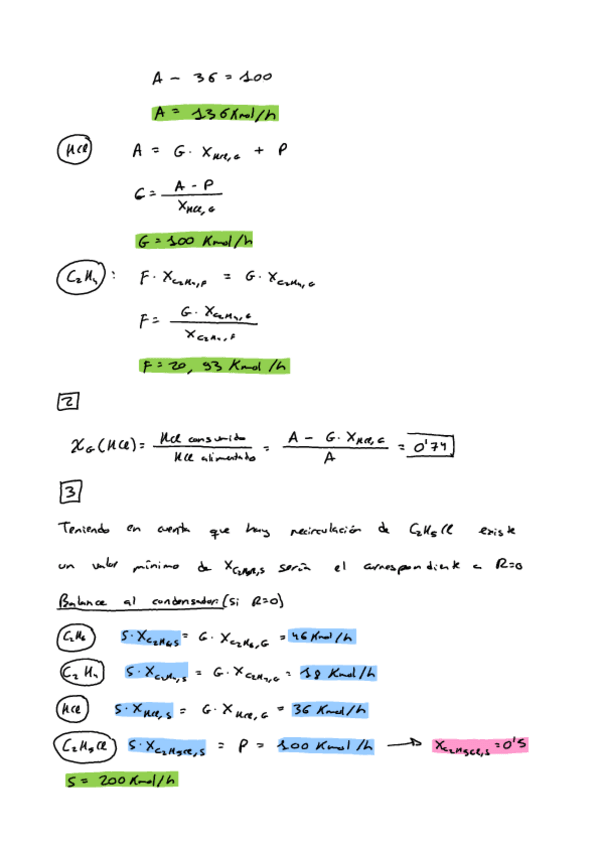 A - 36 = 100
A = 136 Kmol/h
HCl A = G · X_HCl,G + P
G = (A - P) / X_HCl,G
G = 100 Kmol/h
C₂H₄ : F · X_C₂H₄,F = G · X_C₂H₄,G
F = (G · X_C₂H₄,G) / X_C₂H₄,F
F = 20,93 Kmol/h
2
X_G (HCl) = HCl consumido / HCl alimentado = (A - G · X_HCl,G) / A = 0'74
3
Teniendo en cuenta que hay recirculación de C₂H₅Cl existe
un valor mínimo de X_C₂H₅Cl,S sería el correspondiente a R=0
Balance al condensador (si R=0)
C₂H₆ S·X_C₂H₆,S = G · X_C₂H₆,G = 46 Kmol/h
C₂H₄ S·X_C₂H₄,S = G · X_C₂H₄,G = 18 Kmol/h
HCl S·X_HCl,S = G · X_HCl,G = 36 Kmol/h
C₂H₅Cl S·X_C₂H₅Cl,S = P = 100 Kmol/h → X_C₂H₅Cl,S = 0'5
S = 200 Kmol/h